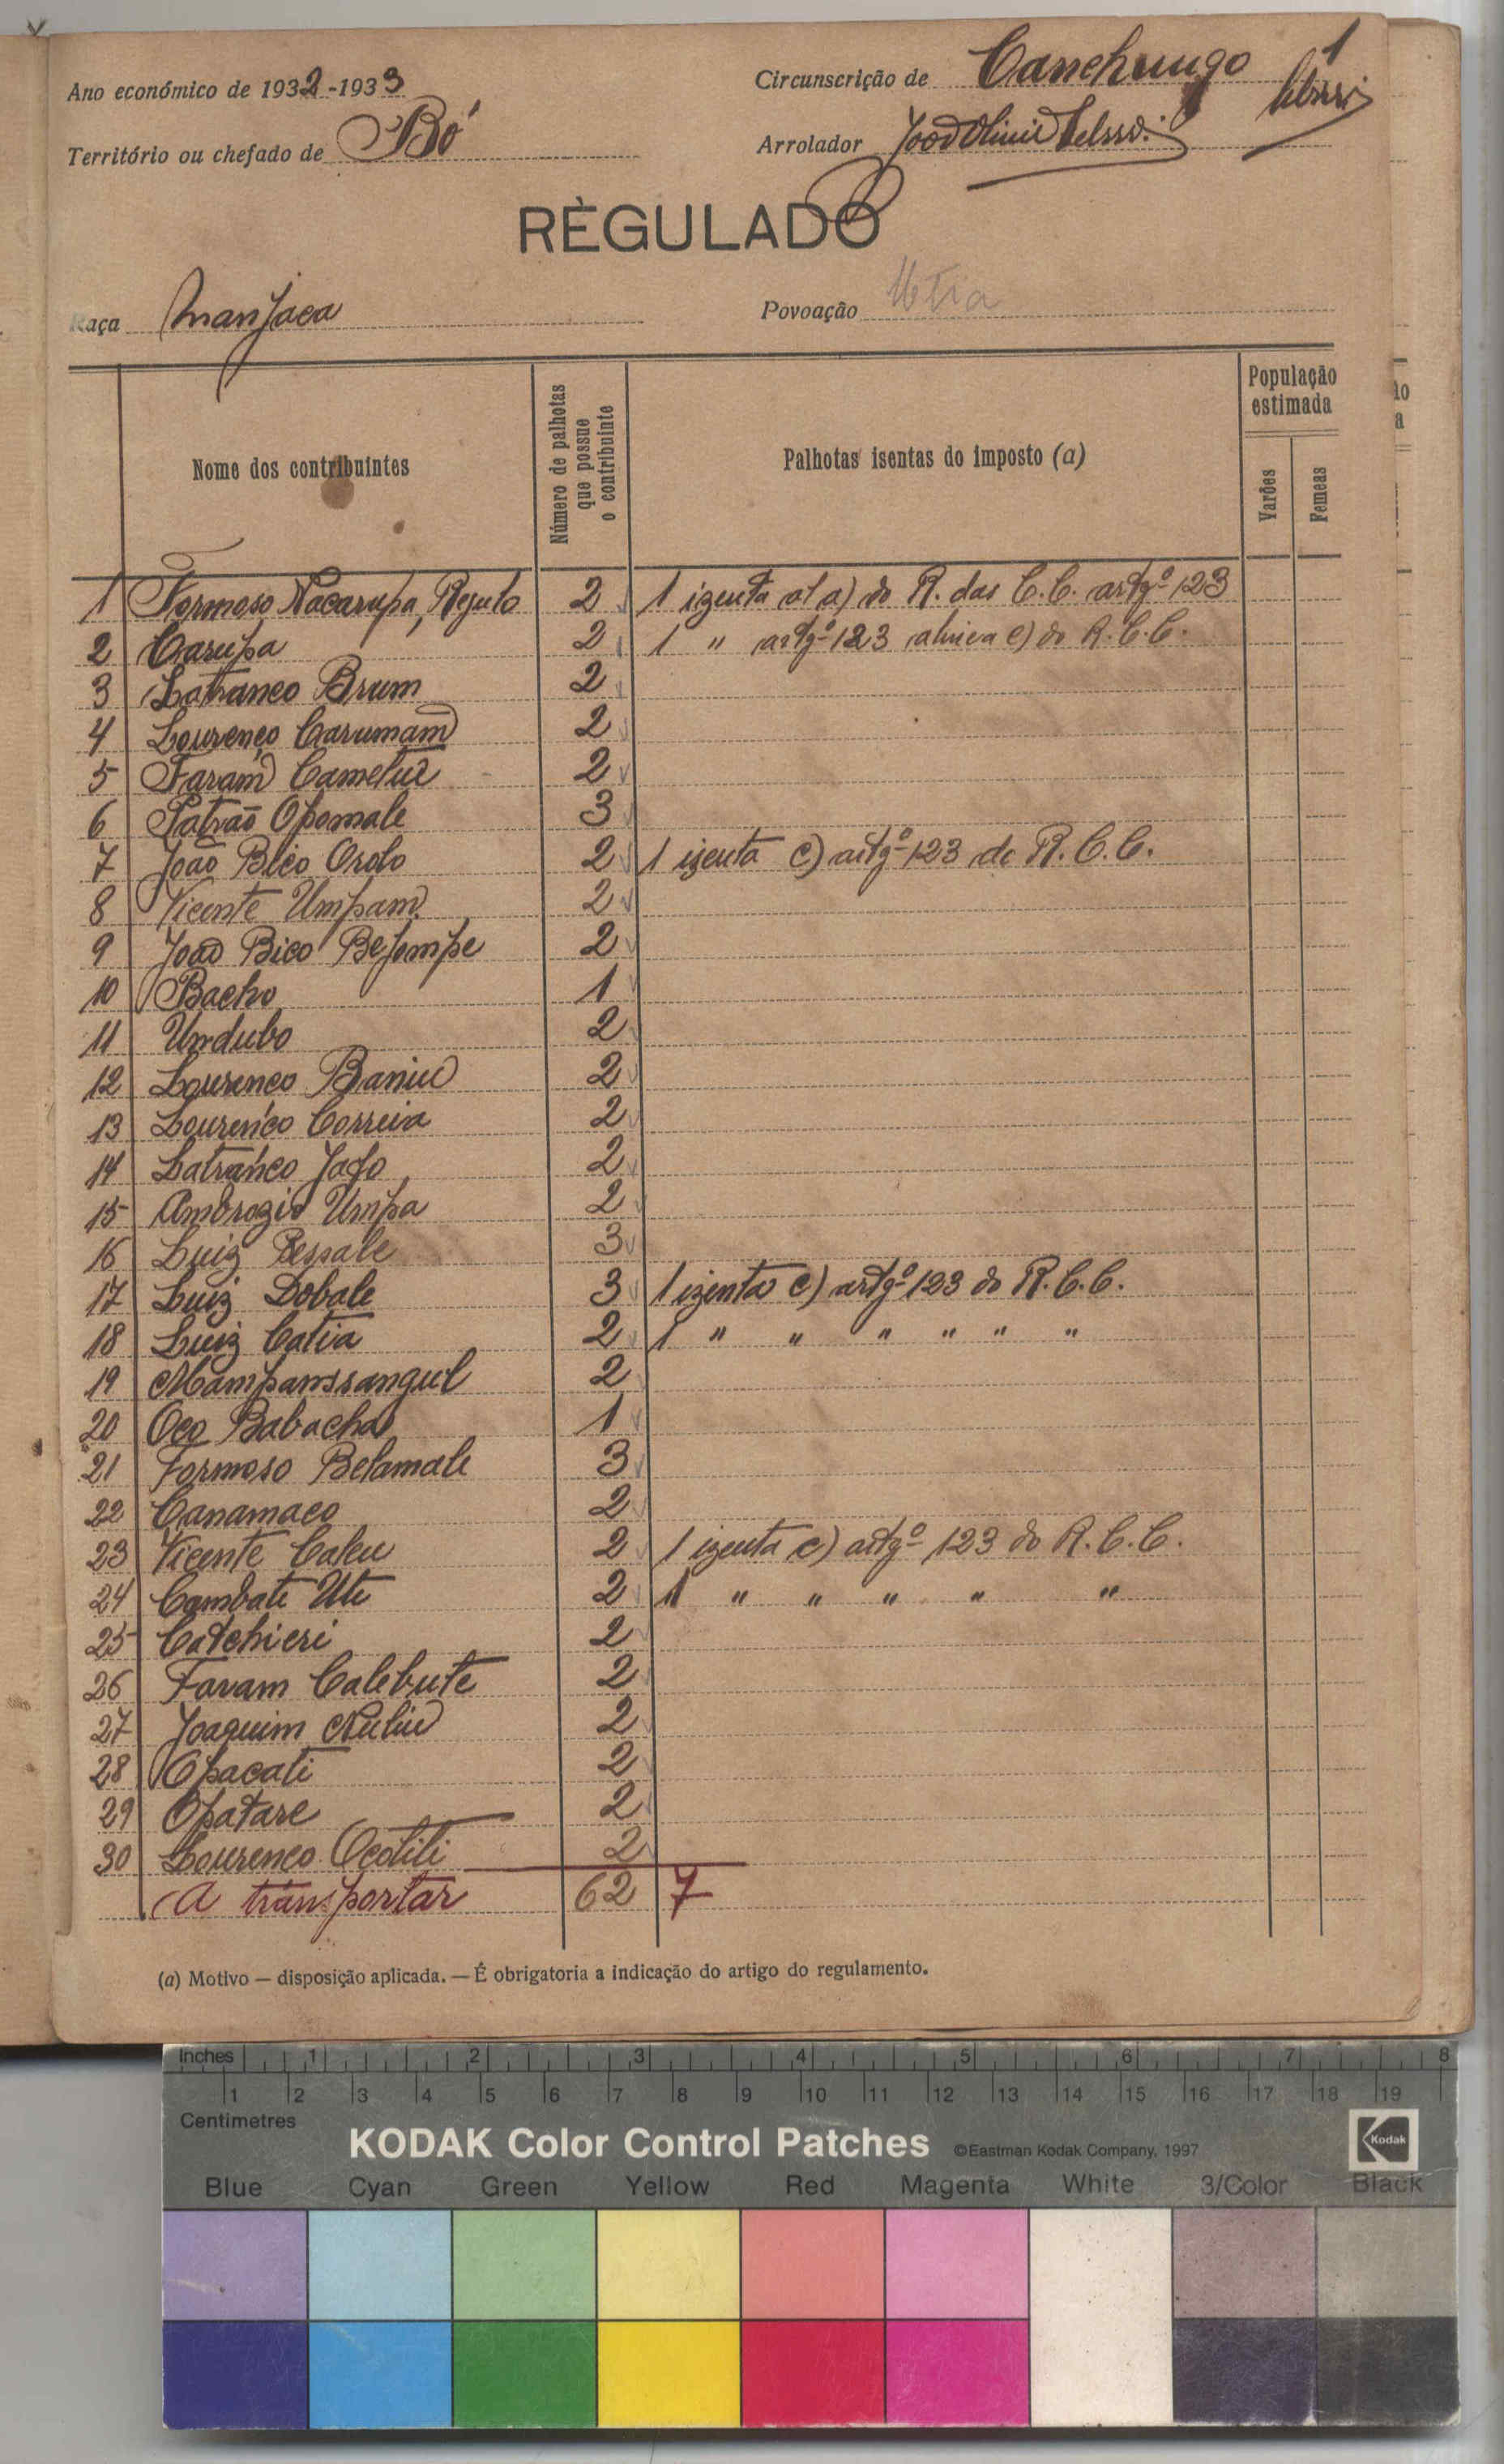 1
Ano económico de 1932-1933
Circunscrição de Canchungo
Território ou chefado de Bó
Arrolador
RÈGULADO
Raça Manjaca
Povoação
Nome dos contribuintes
Número de palhotas que possue o contribuinte
Palhotas isentas do imposto (a)
População estimada
Varões
Femeas
1 Formoso Nacarupa, Regulo 2 1 izenta al a) do R. das C.C. artgº 123
2 Carupa 2 1 " artgº 123 alinea e) do R.C.C.
3 Latranco Brum 2
4 Lourenço Carumam 2
5 Faram Cametue 2
6 Patrão Opomale 3
7 João Bico Oroto 2 1 izenta e) artgº 123 do R.C.C.
8 Vicente Umpam 2
9 João Bico Bejompe 2
10 Bacho 1
11 Undubo 2
12 Lourenço Baniu 2
13 Lourenço Correia 2
14 Latranco Jafo 2
15 Ambrozio Umpa 2
16 Luiz Bessale 3
17 Luiz Dobale 3 1 izenta e) artgº 123 do R.C.C.
18 Luiz Catia 2 1 " " " " " "
19 Mampanssangul 2
20 Oco Babacha 1
21 Formoso Belamale 3
22 Canamaco 2
23 Vicente Caleu 2 1 izenta e) artgº 123 do R.C.C.
24 Cambate Ute 2 1 " " " " "
25 Catchieri 2
26 Faram Calebute 2
27 Joaquim 2
28 Opacati 2
29 Opatare 2
30 Lourenco Ocotili 2
A transportar 62 7
(a) Motivo — disposição aplicada. — É obrigatoria a indicação do artigo do regulamento.
Inches 1 2 3 4 5 6 7 8
1 2 3 4 5 6 7 8 9 10 11 12 13 14 15 16 17 18 19
Centimetres
KODAK Color Control Patches ©Eastman Kodak Company, 1997 Kodak
Blue Cyan Green Yellow Red Magenta White 3/Color Black